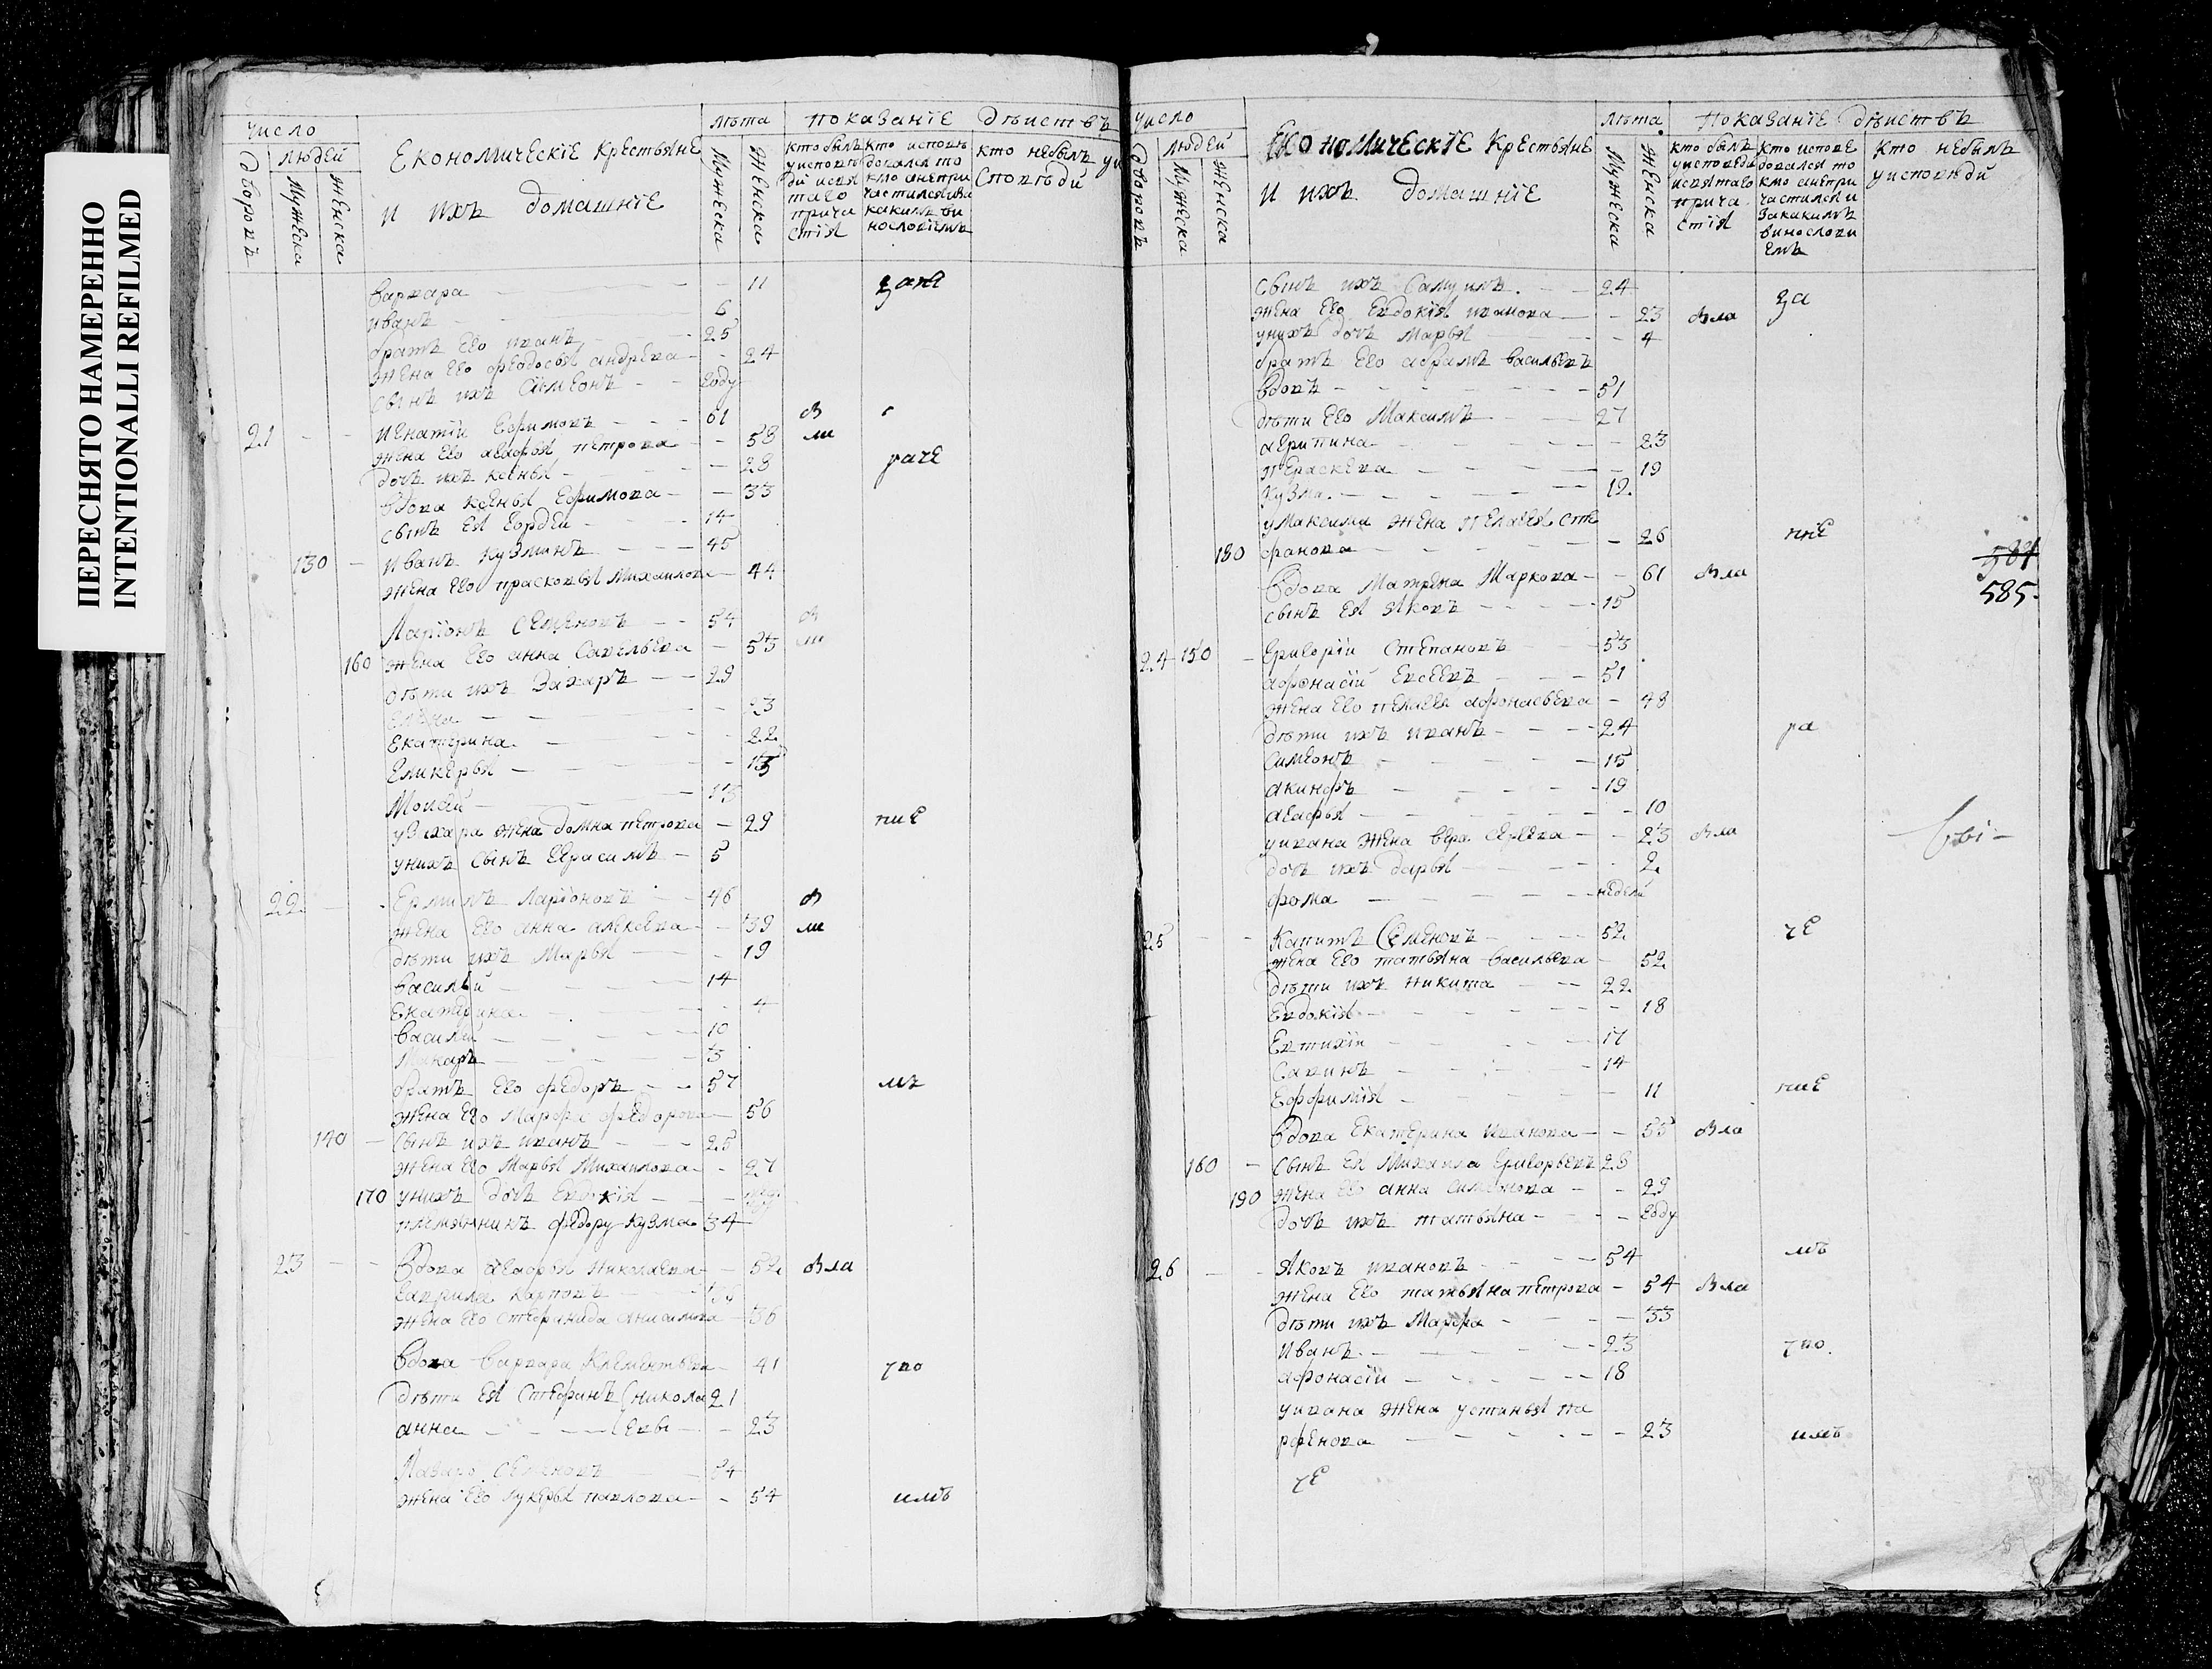 ПЕРЕСНЯТО НАМЕРЕННО
INTENTIONALLI REFILMED
число
людей
дворовъ
мужеска
женска
Економическіе крестьяне
и ихъ домашніе
лѣта
мужеска
женска
показаніе дѣиствъ
кто былъ
уисповѣ
ди исвя
таго
прича
стія
кто исповѣ
довался то
кмо анепри
какимъ ви
нословіемъ
кто небылъ уи
споведи
варвара 11
иванъ 6
братъ его иванъ 25
жена его феодосья андреева 24
сынъ ихъ симеонъ году
21 игнатіи ефимовъ 61 в
жена его агафья петрова 58 ли
дочь ихъ ксенья 28 раче
вдова ксенья ефимова 33
сынъ ея гордеи 14
130 иванъ кузминъ 45
жена его прасковья михаилова 44
ларіонъ семеновъ 54 в
160 жена его анна савельева 53 ли
дѣти ихъ захаръ 29
23
екатерина 22
гликерья
моисеи 13
узахара жена домна петрова 29 ние
унихъ сынъ герасимъ 5
22 ермилъ ларіоновъ 46 в
жена его анна алексеева 39 ли
дѣти ихъ марья 19
василіи 14
екатерина 4
василіи 10
макаръ 3
братъ его федоръ 57 мъ
жена его марфа федорова 56
140 сынъ ихъ иванъ 25
жена его марья михаилова 27
170 унихъ дочь евдокія
племянникъ федору кузма 34
23 вдова агафья николаева 52 вла
гаврила карповъ
жена его стефанида анисимова 36
вдова варвара клементьева 41 тво
дѣти ея стефанъ (никола 21
анна (евы 23
семеновъ
жена его лукерья павлова 54 имъ
число
людей
дворовъ
мужеска
женска
Економическіе крестьяне
и ихъ домашніе
лѣта
мужеска
женска
показаніе дѣиствъ
кто былъ
уисповеди
исвятаго
прича
стія
кто испове
довался то
кмо анепри
частился и
закакимъ
винослови
емъ
кто небылъ
уисповѣди
сынъ ихъ самуилъ 24 за
жена его евдокія иванова 23 вла
унихъ дочь марья 4
братъ его абрамъ васильевъ
вдовъ 51
дѣти его максимъ 27
агрипина 23
параскева 19
кузма 12
умаксима жена пелагея сте
180 фанова 26 ние
584
585
вдова матрена маркова 61 вла
сынъ ея яковъ 15
24 150 григоріи степановъ 53
афонасіи евсеевъ 51
жена его пелагея афонасьева 48
дѣти ихъ иванъ 24 ра
симеонъ 15
акинфъ 19
агафья 10
уивана жена вера сергеева 23 вла
дочь ихъ дарья 2
фома недель
25 капитъ семеновъ 52 че
жена его татьяна васильева 52
дѣти ихъ никита 22
евдокія 18
евтихіи 17
савинъ 14
еффимія 11 ние
вдова екатерина иванова 55 вла
160 сынъ ея михаила григорьевъ 28
190 жена его анна симеонова 29
дочь ихъ татьяна году
26 яковъ ивановъ 54 мъ
жена его татьяна петрова 54 вла
дѣти ихъ марфа 33
иванъ 23 тво
афонасіи 18
уивана жена устинья па
рфенова 23 имъ
че